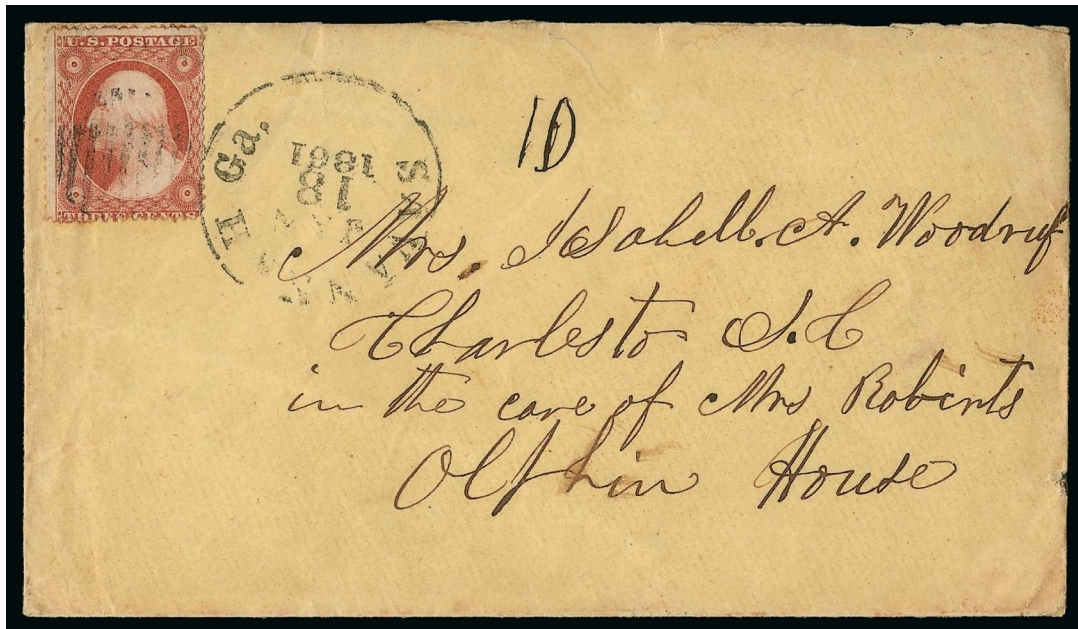 U.S. POSTAGE
THREE CENTS
SAVANNAH Ga.
18
1861
10
Mrs. Isabell. A. Woodruf
Charlesto S.C
in the care of Mrs Robirts
Olfhin House